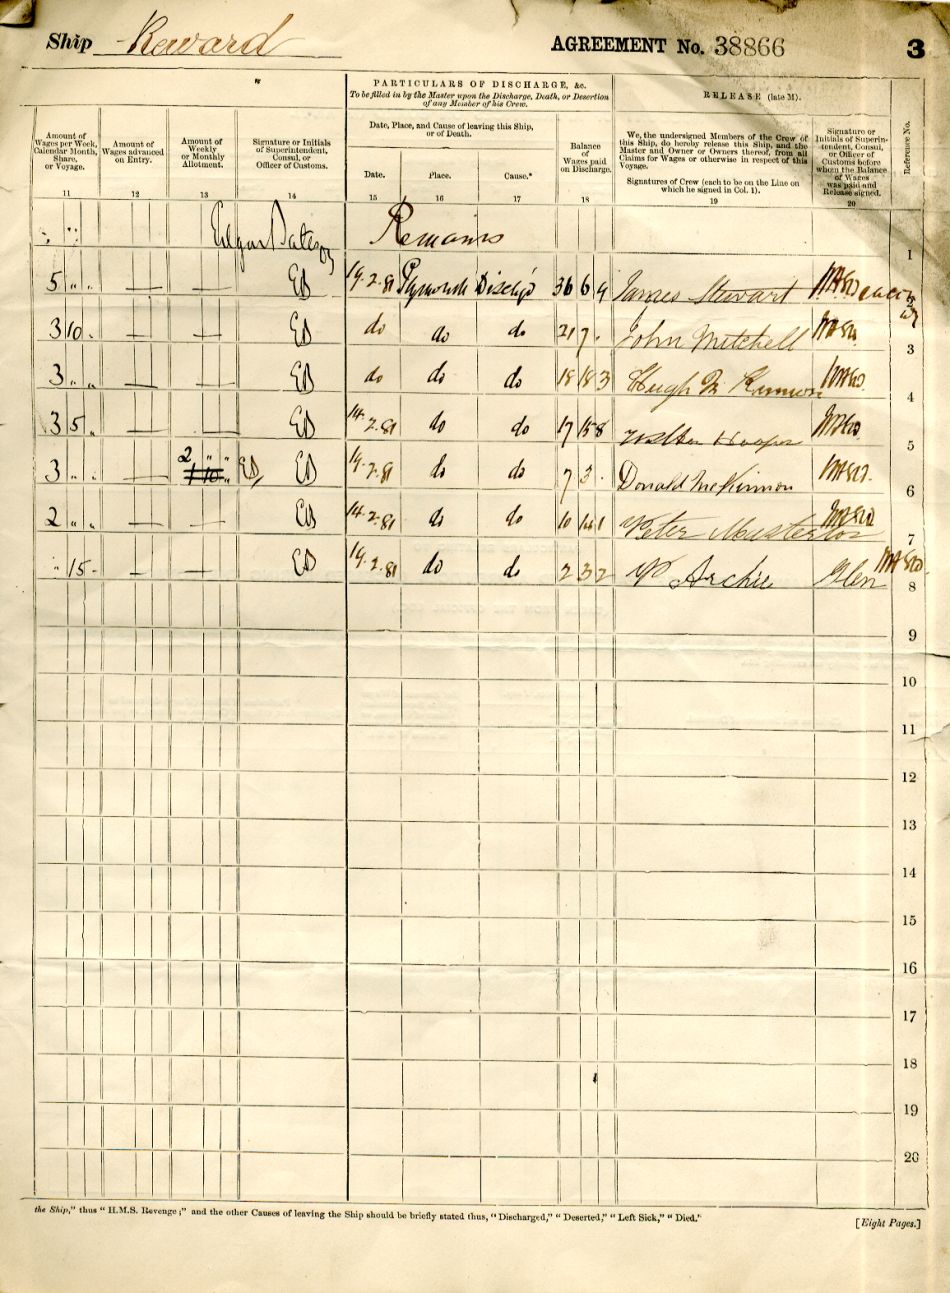 Ship Reward AGREEMENT No. 38866 3
PARTICULARS OF DISCHARGE, &c.
To be filled in by the Master upon the Discharge, Death, or Desertion
of any Member of his Crew.
RELEASE (late M).
Amount of
Wages per Week,
Calendar Month,
Share,
or Voyage.
Amount of
Wages advanced
on Entry.
Amount of
Weekly
or Monthly
Allotment.
Signature or Initials
of Superintendent,
Consul, or
Officer of Customs.
Date, Place, and Cause of leaving this Ship,
or of Death.
Date. Place. Cause.*
Balance
of
Wages paid
on Discharge.
We, the undersigned Members of the Crew of
this Ship, do hereby release this Ship, and the
Master and Owner or Owners thereof, from all
Claims for Wages or otherwise in respect of this
Voyage.
Signatures of Crew (each to be on the Line on
which he signed in Col. 1).
Signature or
Initials of Superin-
tendent, Consul,
or Officer of
Customs before
whom the Balance
of Wages
was paid and
Release signed.
Reference No.
11 12 13 14 15 16 17 18 19 20
Remains 1
5 " " — — 14.2.81 Plymouth Disch'd 36 6 9 James Stewart 2
3 10 . — — do do do 21 7 . John Mitchell 3
3 " " — — do do do 18 18 3 Hugh Mc Kinnon 4
3 5 " — — 14.2.81 do do 17 15 8 Walter Hooper 5
3 " . — 2 " " 1 10 " 14.2.81 do do 7 3 . Donald McKinnon 6
2 " " — — 14.2.81 do do 10 14 1 Peter Masterton 7
" 15 - — — 14.2.81 do do 2 3 2 Archie Glen 8
9
10
11
12
13
14
15
16
17
18
19
20
the Ship," thus "H.M.S. Revenge;" and the other Causes of leaving the Ship should be briefly stated thus, "Discharged," "Deserted," "Left Sick," "Died."
[Eight Pages.]